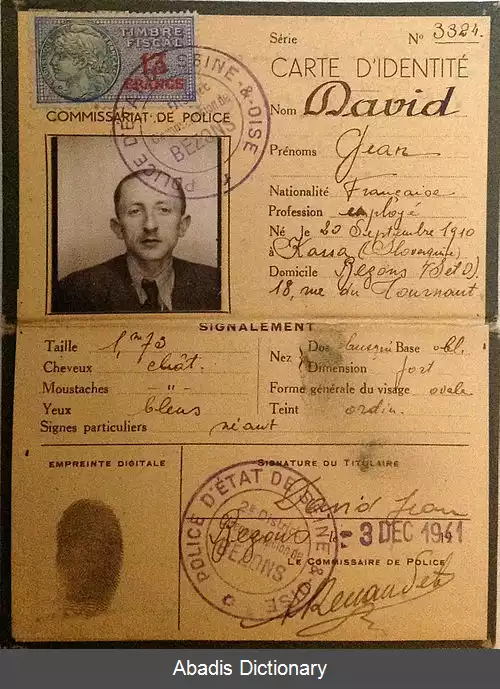 TIMBRE
FISCAL
13
FRANCS
Série
Nº 3324.
CARTE D'IDENTITÉ
COMMISSARIAT DE POLICE
POLICE D'ÉTAT DE SEINE-&-OISE
BEZONS
Nom David
Prénoms Jean
Nationalité Française
Profession employé
Né le 20 Septembre 1910
à Kassa
Domicile Bezons (S et O).
18, rue du Tournant
SIGNALEMENT
Taille 1,m73
Cheveux chât.
Moustaches -"-
Yeux bleus
Signes particuliers néant
Nez
Dos busqué Base obl.
Dimension fort
Forme générale du visage ovale
Teint ordin.
EMPREINTE DIGITALE
SIGNATURE DU TITULAIRE
David Jean
POLICE D'ÉTAT DE SEINE-&-OISE
2e District
BEZONS
Bezons, le 3 DEC 1941
LE COMMISSAIRE DE POLICE
Abadis Dictionary